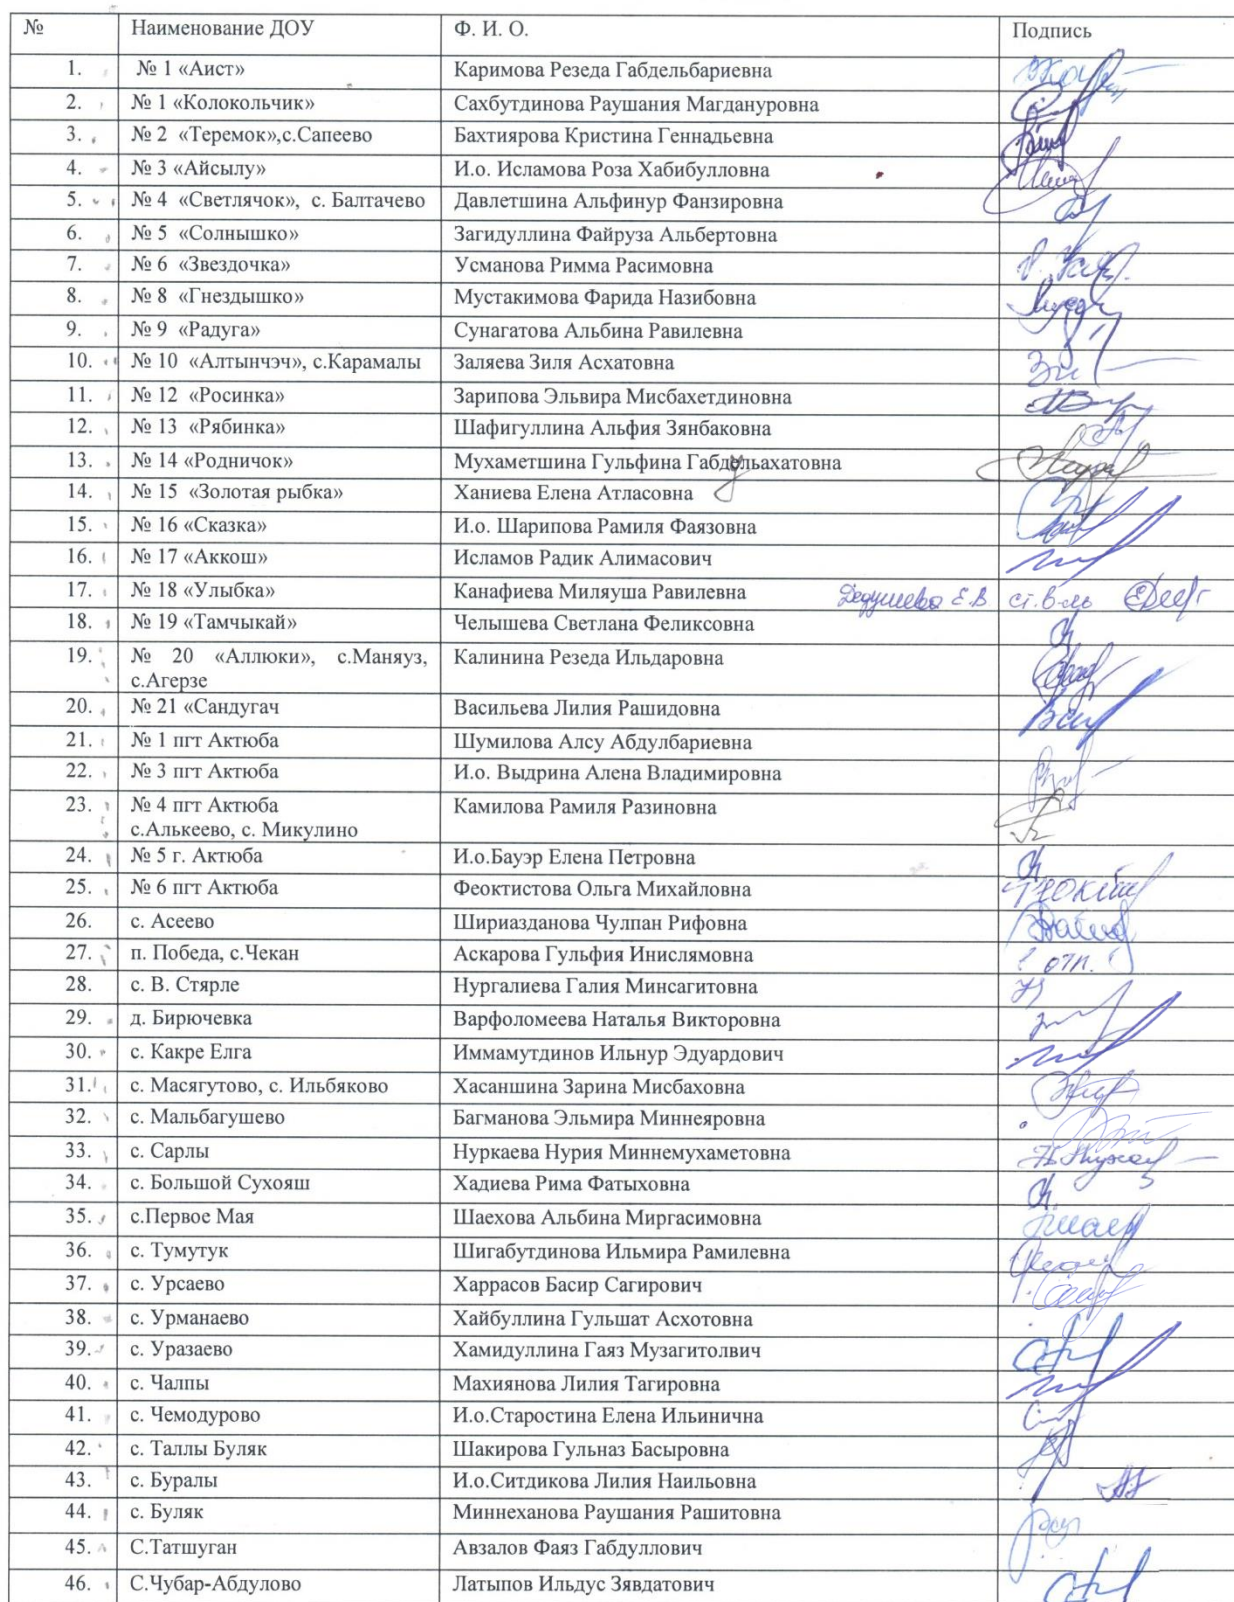 № Наименование ДОУ Ф. И. О. Подпись
1. № 1 «Аист» Каримова Резеда Габдельбариевна
2. № 1 «Колокольчик» Сахбутдинова Раушания Магдануровна
3. № 2 «Теремок»,с.Сапеево Бахтиярова Кристина Геннадьевна
4. № 3 «Айсылу» И.о. Исламова Роза Хабибулловна
5. № 4 «Светлячок», с. Балтачево Давлетшина Альфинур Фанзировна
6. № 5 «Солнышко» Загидуллина Файруза Альбертовна
7. № 6 «Звездочка» Усманова Римма Расимовна
8. № 8 «Гнездышко» Мустакимова Фарида Назибовна
9. № 9 «Радуга» Сунагатова Альбина Равилевна
10. № 10 «Алтынчэч», с.Карамалы Заляева Зиля Асхатовна
11. № 12 «Росинка» Зарипова Эльвира Мисбахетдиновна
12. № 13 «Рябинка» Шафигуллина Альфия Зянбаковна
13. № 14 «Родничок» Мухаметшина Гульфина Габдельахатовна
14. № 15 «Золотая рыбка» Ханиева Елена Атласовна
15. № 16 «Сказка» И.о. Шарипова Рамиля Фаязовна
16. № 17 «Аккош» Исламов Радик Алимасович
17. № 18 «Улыбка» Канафиева Миляуша Равилевна Дедушева Е.В ст.в-ль
18. № 19 «Тамчыкай» Челышева Светлана Феликсовна
19. № 20 «Аллюки», с.Маняуз, Калинина Резеда Ильдаровна
с.Агерзе
20. № 21 «Сандугач Васильева Лилия Рашидовна
21. № 1 пгт Актюба Шумилова Алсу Абдулбариевна
22. № 3 пгт Актюба И.о. Выдрина Алена Владимировна
23. № 4 пгт Актюба Камилова Рамиля Разиновна
с.Алькеево, с. Микулино
24. № 5 г. Актюба И.о.Бауэр Елена Петровна
25. № 6 пгт Актюба Феоктистова Ольга Михайловна
26. с. Асеево Шириазданова Чулпан Рифовна
27. п. Победа, с.Чекан Аскарова Гульфия Инислямовна в отп.
28. с. В. Стярле Нургалиева Галия Минсагитовна
29. д. Бирючевка Варфоломеева Наталья Викторовна
30. с. Какре Елга Иммамутдинов Ильнур Эдуардович
31. с. Масягутово, с. Ильбяково Хасаншина Зарина Мисбаховна
32. с. Мальбагушево Багманова Эльмира Миннеяровна
33. с. Сарлы Нуркаева Нурия Миннемухаметовна
34. с. Большой Сухояш Хадиева Рима Фатыховна
35. с.Первое Мая Шаехова Альбина Миргасимовна
36. с. Тумутук Шигабутдинова Ильмира Рамилевна
37. с. Урсаево Харрасов Басир Сагирович
38. с. Урманаево Хайбуллина Гульшат Асхотовна
39. с. Уразаево Хамидуллина Гаяз Музагитолвич
40. с. Чалпы Махиянова Лилия Тагировна
41. с. Чемодурово И.о.Старостина Елена Ильинична
42. с. Таллы Буляк Шакирова Гульназ Басыровна
43. с. Буралы И.о.Ситдикова Лилия Наильовна
44. с. Буляк Миннеханова Раушания Рашитовна
45. С.Татшуган Авзалов Фаяз Габдуллович
46. С.Чубар-Абдулово Латыпов Ильдус Зявдатович